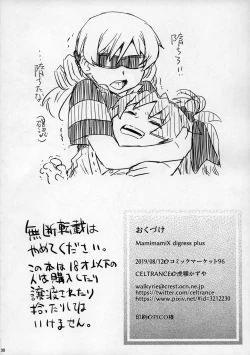 堕ちろ!!
堕ちたな。
(確認)
無断転載は
やめてください。
この本は18才以下の
人は購入したり
譲渡されたり
拾ったりしては
いけません。
おくづけ
MamimamiX digress plus
2019/08/12✿コミックマーケット96
CELTRANCE✿虎猫かずや
walkyrie@crest.ocn.ne.jp
https://twitter.com/celtrance
https://www.pixiv.net/#id=3212230